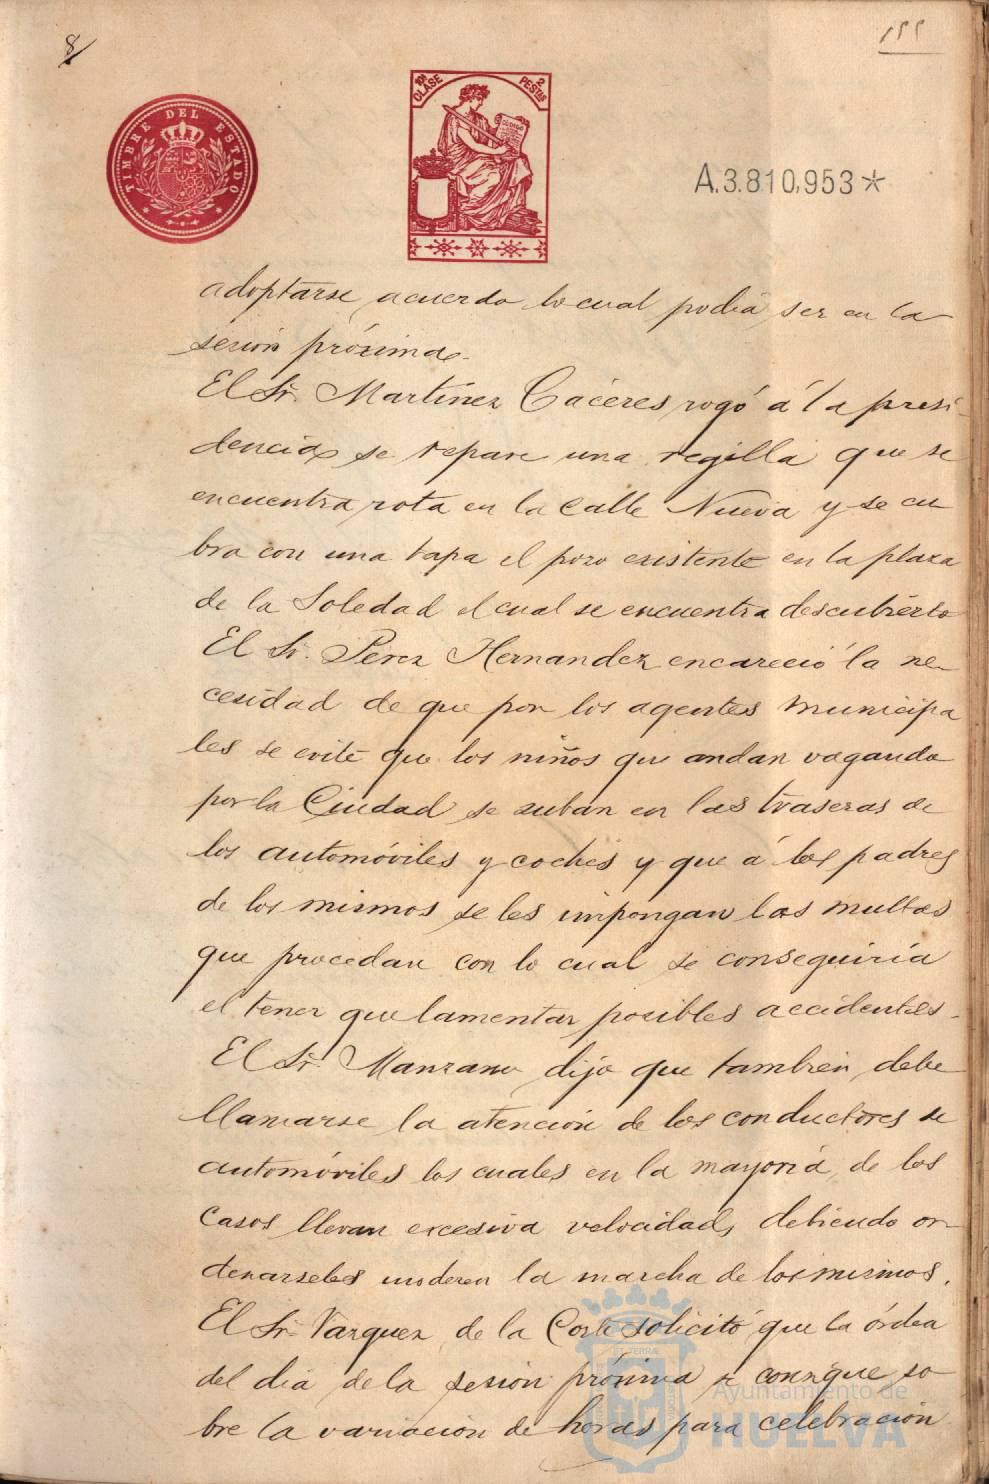 8
155
TIMBRE DEL ESTADO
10ª CLASE 2 PESTAS
A.3.810,953*
adoptarse acuerdo lo cual podia ser en la
sesión próxima.
El Sr. Martinez Cáceres rogó á la presi-
dencia se repare una regilla que se
encuentra rota en la calle Nueva y se cu
bra con una tapa el pozo existente en la plaza
de la Soledad el cual se encuentra descubierto
El Sr. Perez Hernandez encareció la ne-
cesidad de que por los agentes municipa
les se evite que los niños que andan vagando
por la Ciudad se suban en las traseras de
los automóviles y coches y que á los padres
de los mismos se les impongan las multas
que procedan con lo cual se conseguiría
el tener que lamentar posibles accidentes.
El Sr. Manzano dijo que también debe
llamarse la atención de los conductores de
automóviles los cuales en la mayoria de los
casos llevan excesiva velocidad, debiendo or-
denarseles moderen la marcha de los mismos.
El Sr. Vazquez de la Corte solicitó que la órden
del dia de la sesion próxima se consigne so
bre la variación de horas para celebración
Ayuntamiento de
HUELVA